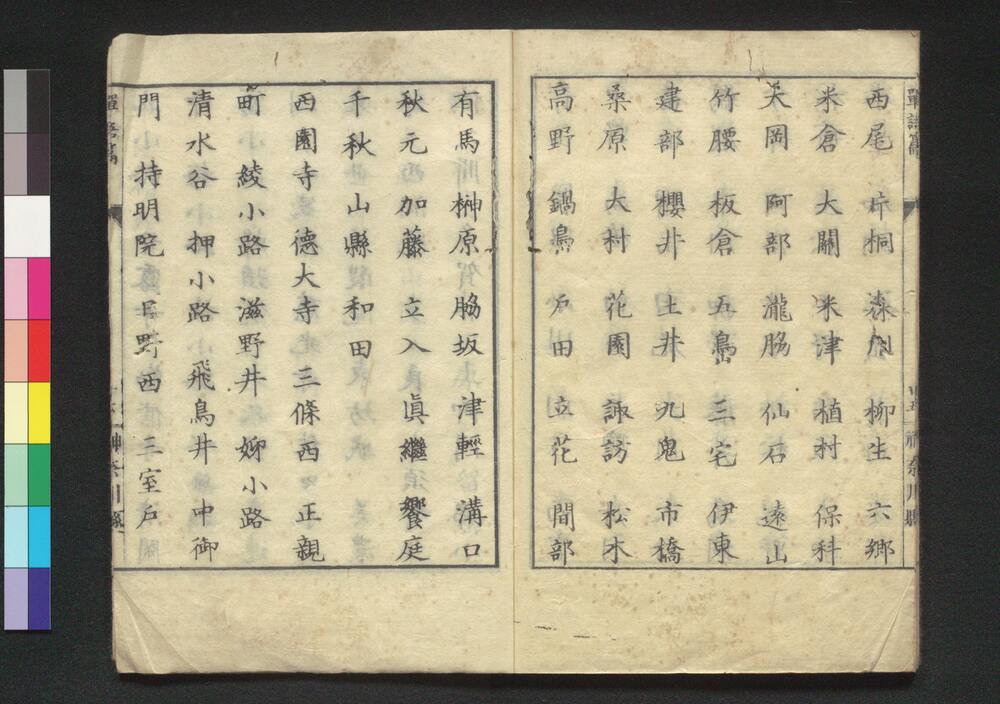 西尾 片桐 森川 柳生 六郷
米倉 大關 米津 植村 保科
大岡 阿部 瀧脇 仙石 遠山
竹腰 板倉 五島 三宅 伊東
建部 櫻井 土井 九鬼 市橋
桑原 大村 花園 諏訪 松木
高野 鍋島 戸田 立花 間部
有馬 榊原 脇坂 津輕 溝口
秋元 加藤 立入 眞繼 饗庭
千秋 山縣 和田
西園寺 德大寺 三條西 正親
町 綾小路 滋野井 姉小路
清水谷 押小路 飛鳥井 中御
門 持明院 日野西 三室戸
單語篇
神奈川縣